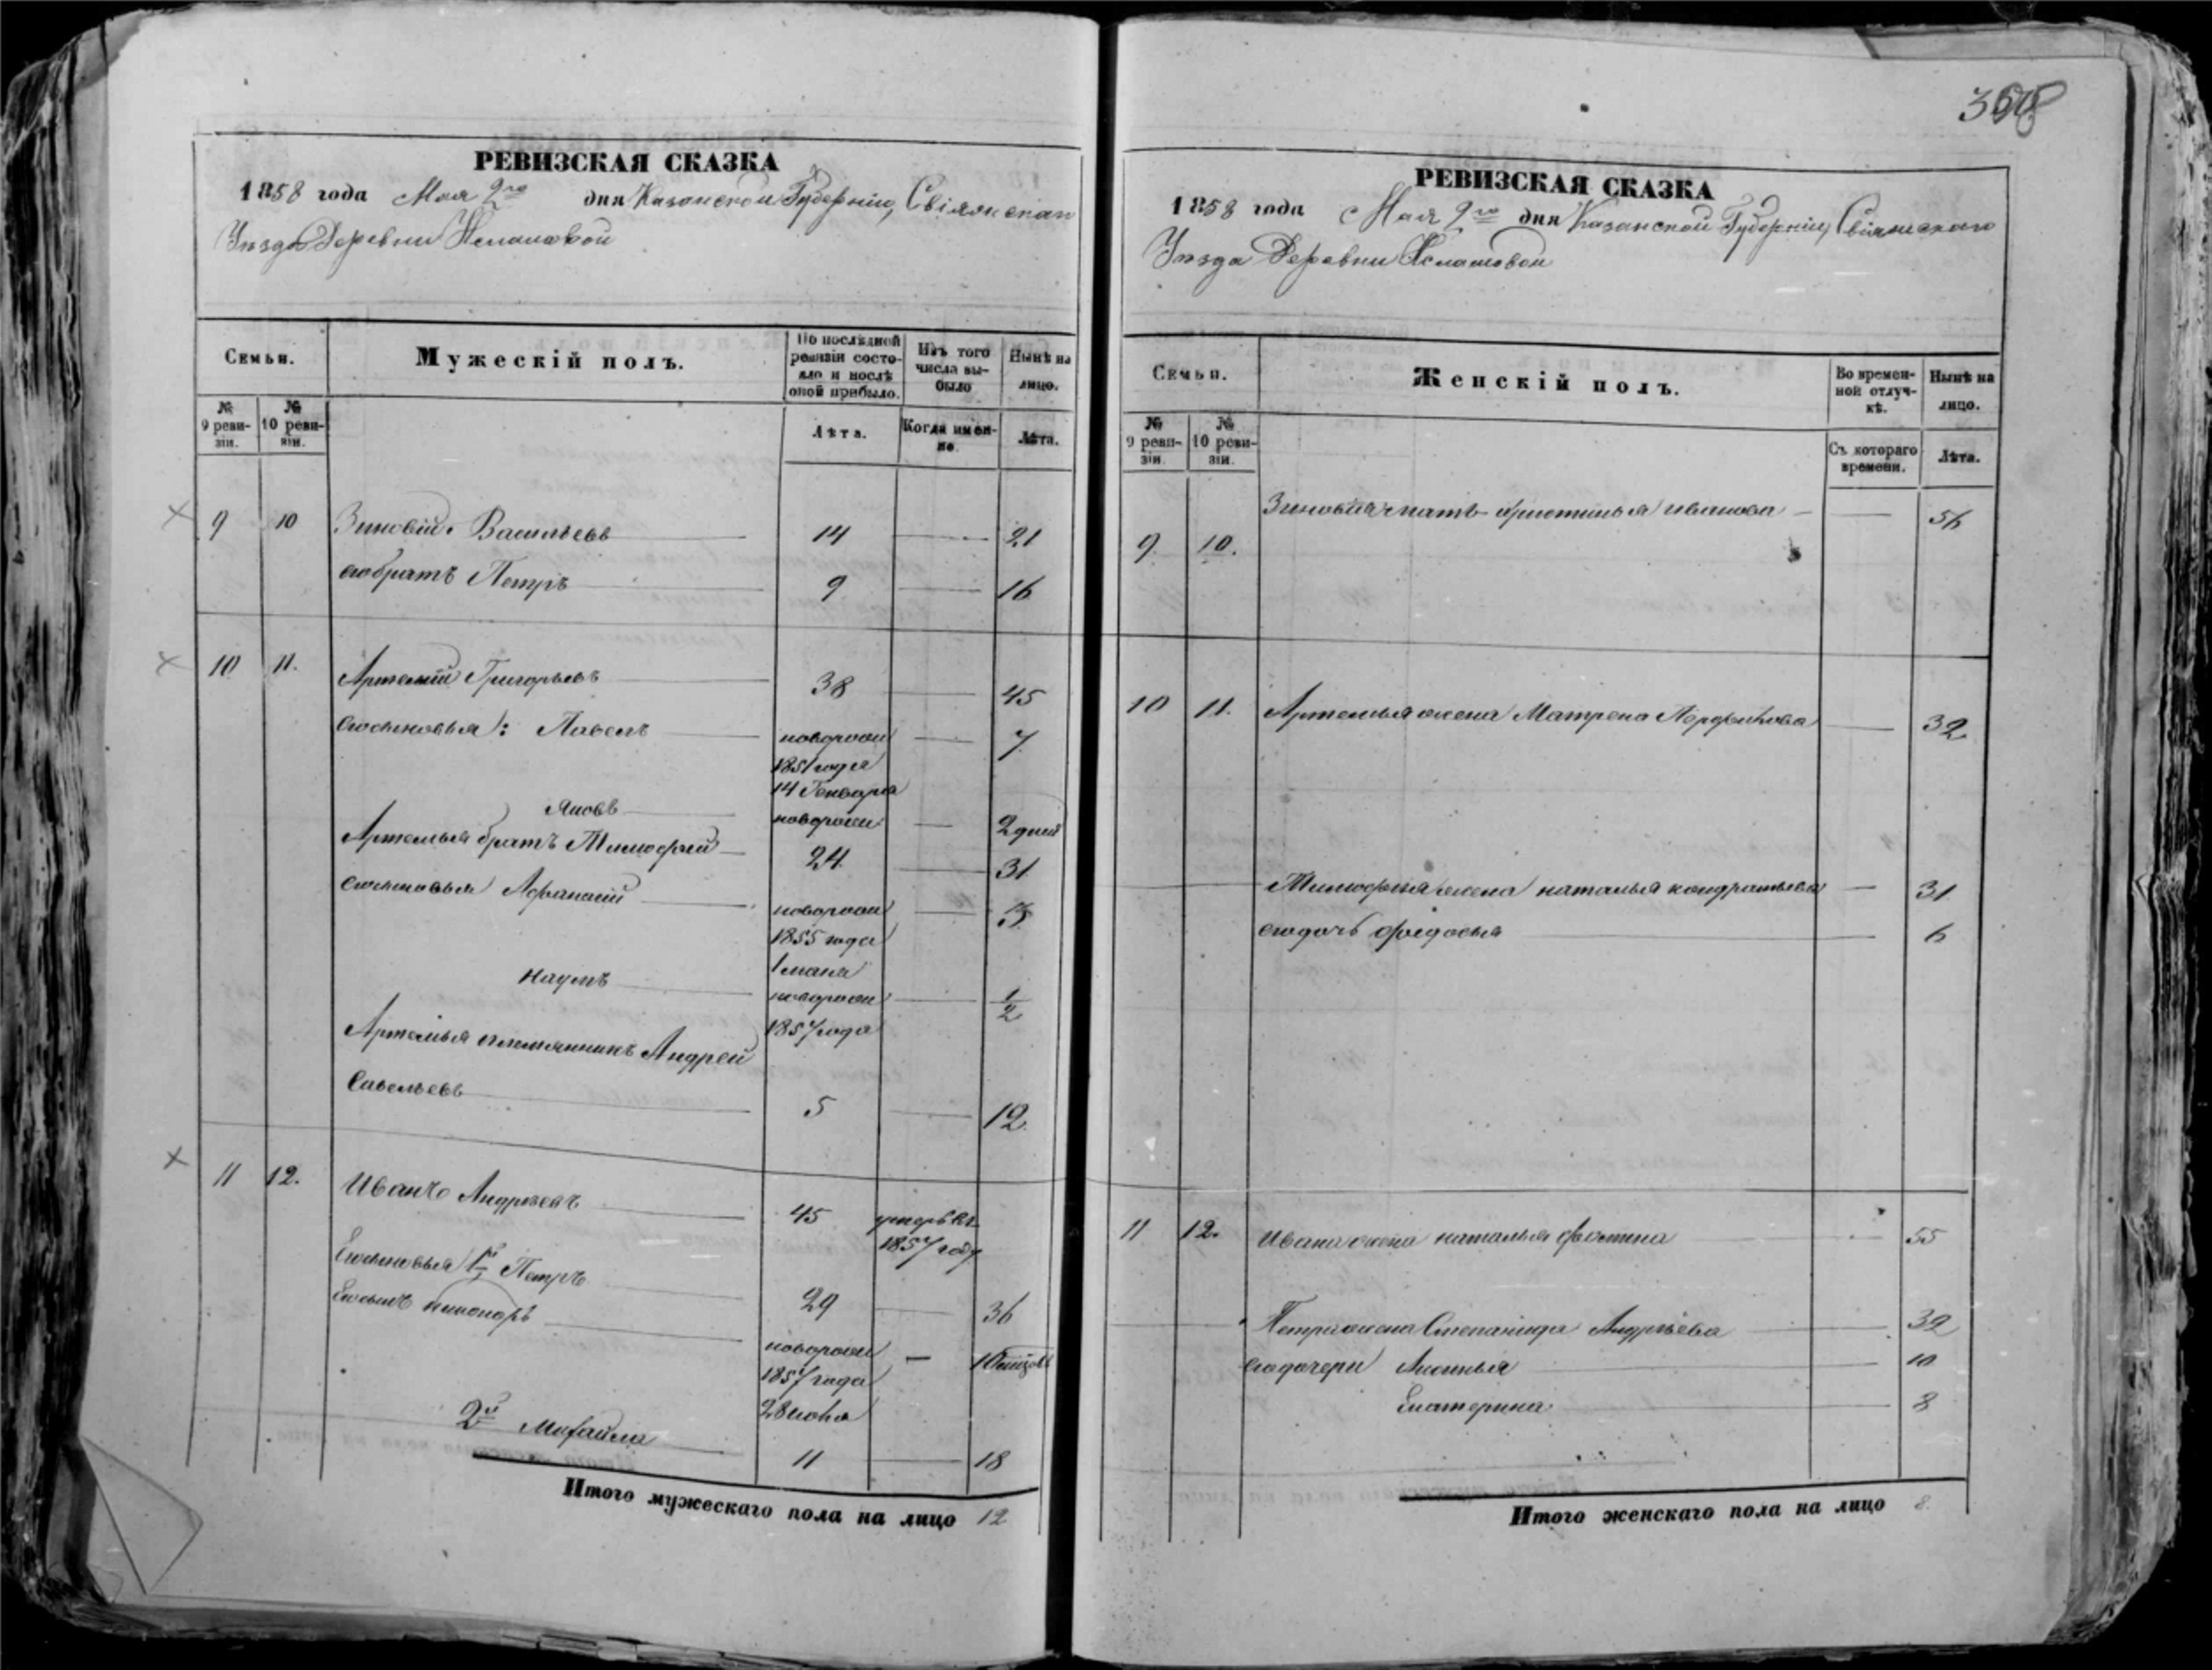 РЕВИЗСКАЯ СКАЗКА
1858 года Мая 2го дня Казанской Губерніи, Свіяжскаго
Уѣзда Деревни
Семьи.
Мужескій полъ.
По послѣдней ревизіи состояло и послѣ оной прибыло.
Изъ того числа выбыло
Нынѣ на лицо.
№ 9 ревизіи.
№ 10 ревизіи.
Лѣта.
Когда именно.
Лѣта.
9 10 Зиновій Васильевъ 14 — 21
его братъ Петръ 9 — 16
10 11. Артемій Григорьевъ 38 — 45
его сыновья: Павелъ новорожд — 7
1851 года
14 Генваря
Яковъ новорожд — 2 дней
Артемья братъ Тимофей 24 — 31
его сыновья Афанасій новорожд — 3
1855 года
1 мая
Наумъ новорожд — 1/2
1857 года
Артемья племянникъ Андрей
Савельевъ 5 — 12
11 12. Иванъ Андреевъ 45 умеръ въ
1857 году
Его сыновья 1й Петръ 29 — 36
Его сынъ Никоноръ новорожд —
1857 года
28 июня
2й Михайла 11 — 18
Итого мужескаго пола на лицо 12
РЕВИЗСКАЯ СКАЗКА
1858 года Мая 2го дня Казанской Губерніи, Свіяжскаго
Уѣзда Деревни
Семьи.
Женскій полъ.
Во временной отлучкѣ.
Нынѣ на лицо.
№ 9 ревизіи.
№ 10 ревизіи.
Съ котораго времени.
Лѣта.
9. 10. Зиновья мать Иванова — 56
10 11. Артемья жена Матрена — 32
Тимофея жена наталья кондратьева — 31
его дочь федосья — 6
11 12. Ивана жена наталья 55
Петра жена Степанида Андреева 32
его дочери 10
Екатерина 8
Итого женскаго пола на лицо 8.